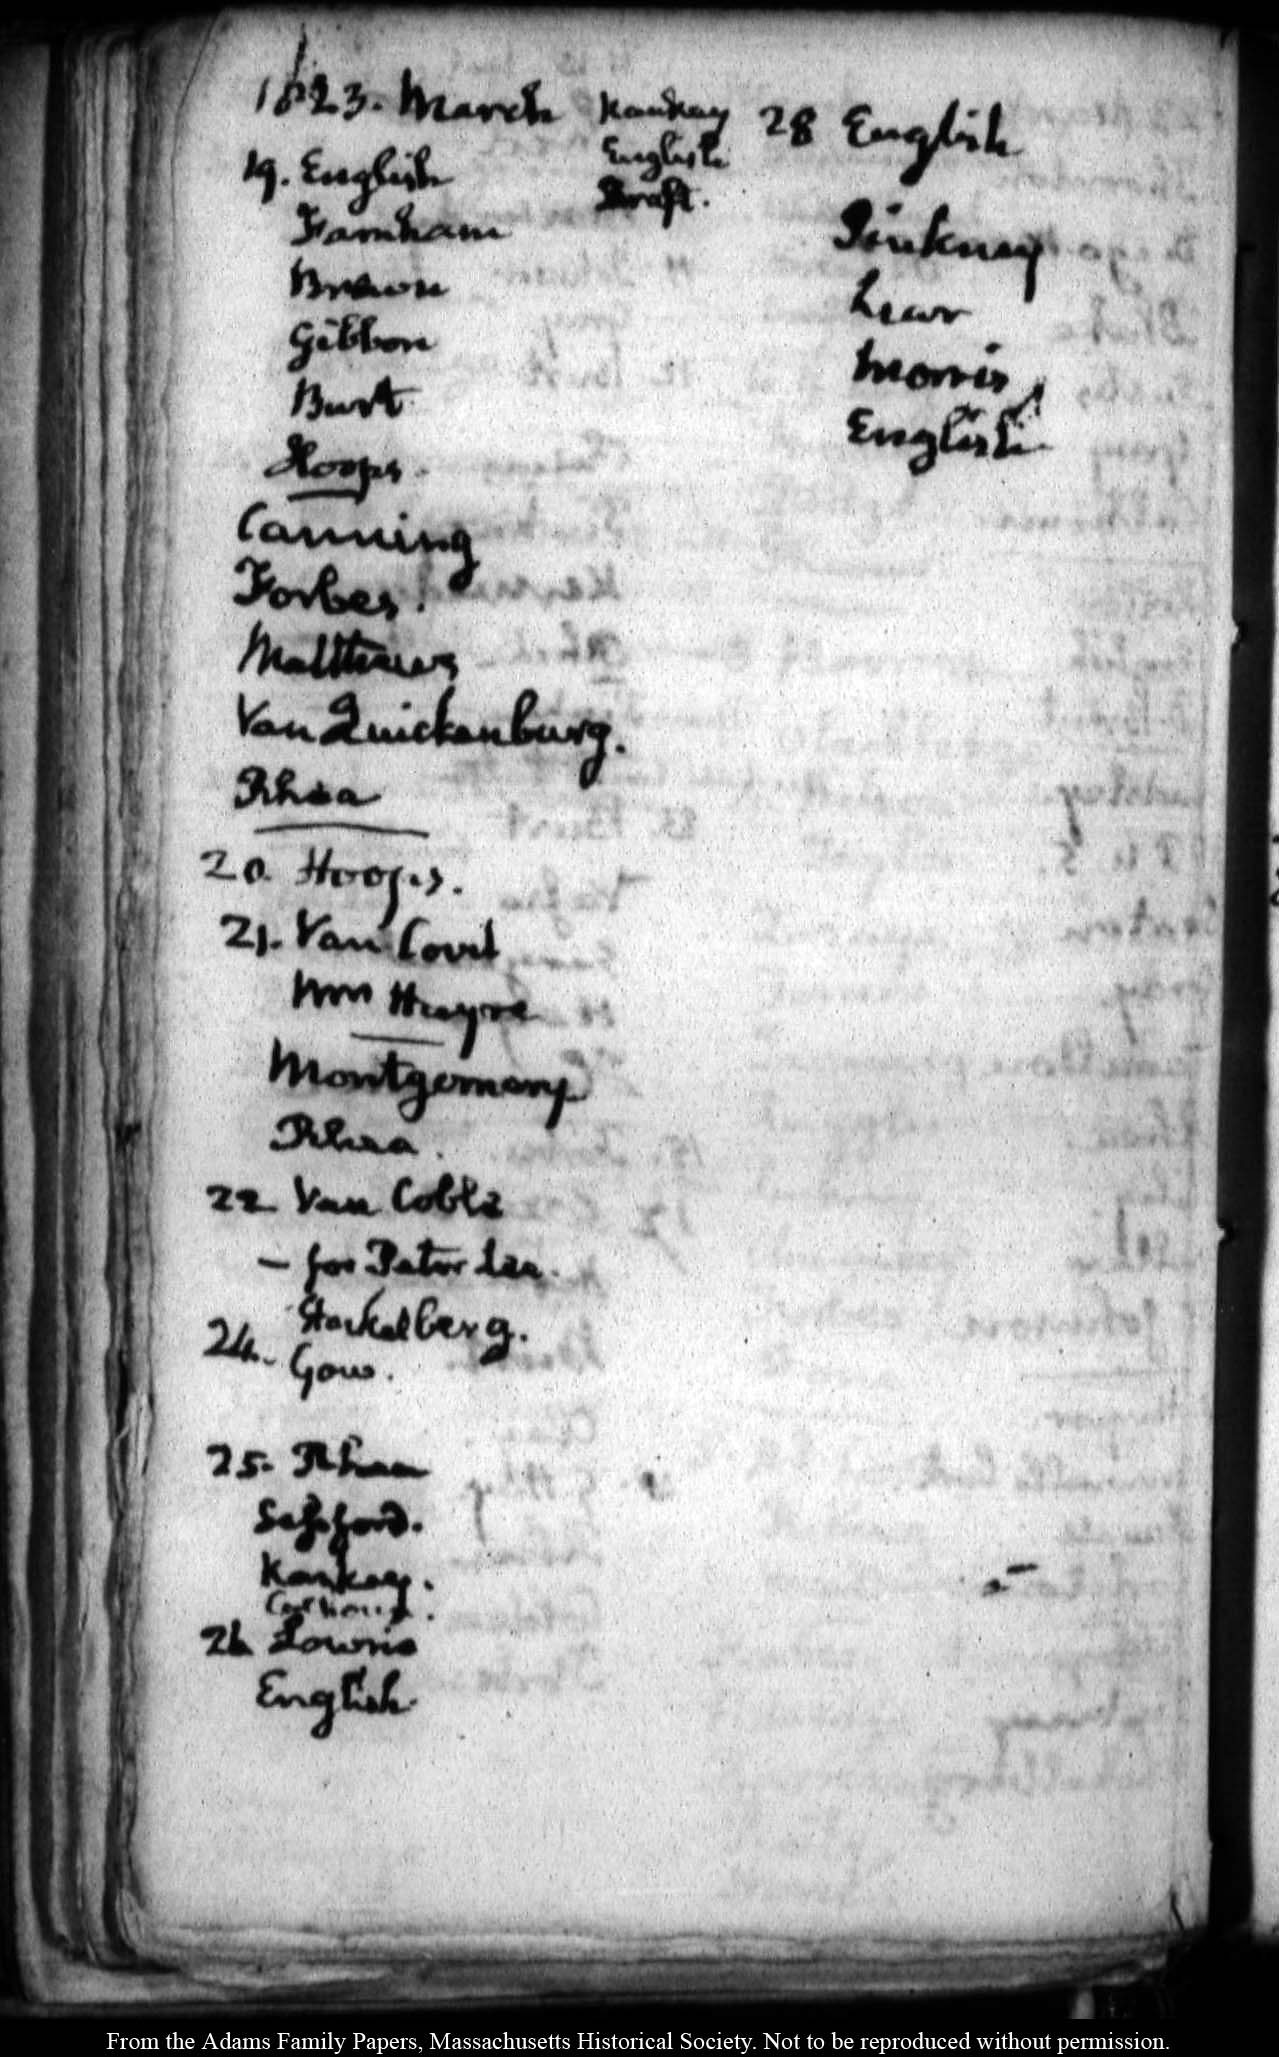 1823. March
19. English
Farnham
Brown
Gibbon
Burt
Hoops.
Canning
Forbes.
Matthews
Van Quickenburg.
Rhea
20. Hoops.
21. Van Cort
Wm
Montgomery
Rhea.
22 Van Coble
— for Peter Lee.
Stackelberg.
24. Gow.
25. Rhea
Sessford.
Kankey.
Calhoun.
26 Lowrie
English
Kankey
English
Draft.
28 English
Pinkney
Lear
Morris
English
From the Adams Family Papers, Massachusetts Historical Society. Not to be reproduced without permission.